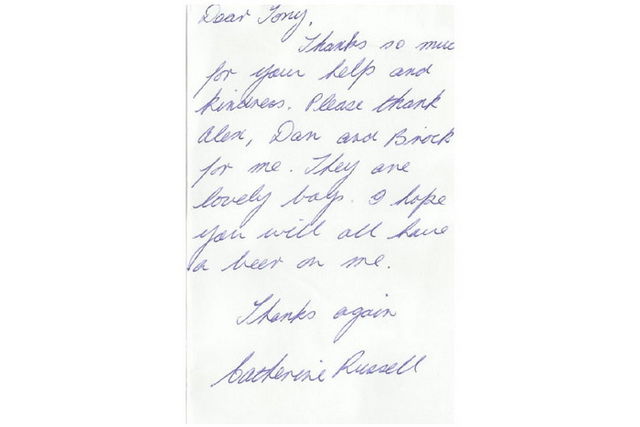 Dear Tony,
Thanks so muc
for your help and
kindness. Please thank
Alex, Dan and Brock
for me. They are
lovely boys. I hope
you will all have
a beer on me.
Thanks again
Catherine Russell